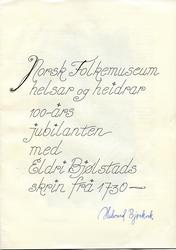 Norsk Folkemuseum
helsar og heidrar
100-års
jubilanten
med
Eldri Bjølstads
skrin frå 1730